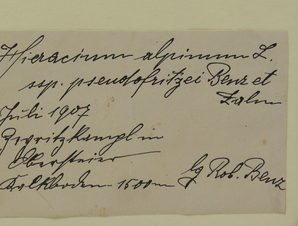 Hieracium alpinum L.
ssp. pseudofritzei Benz et
Zahn
Juli 1907
in
Obersteier
Kalkboden 1500m lg Rob. Benz